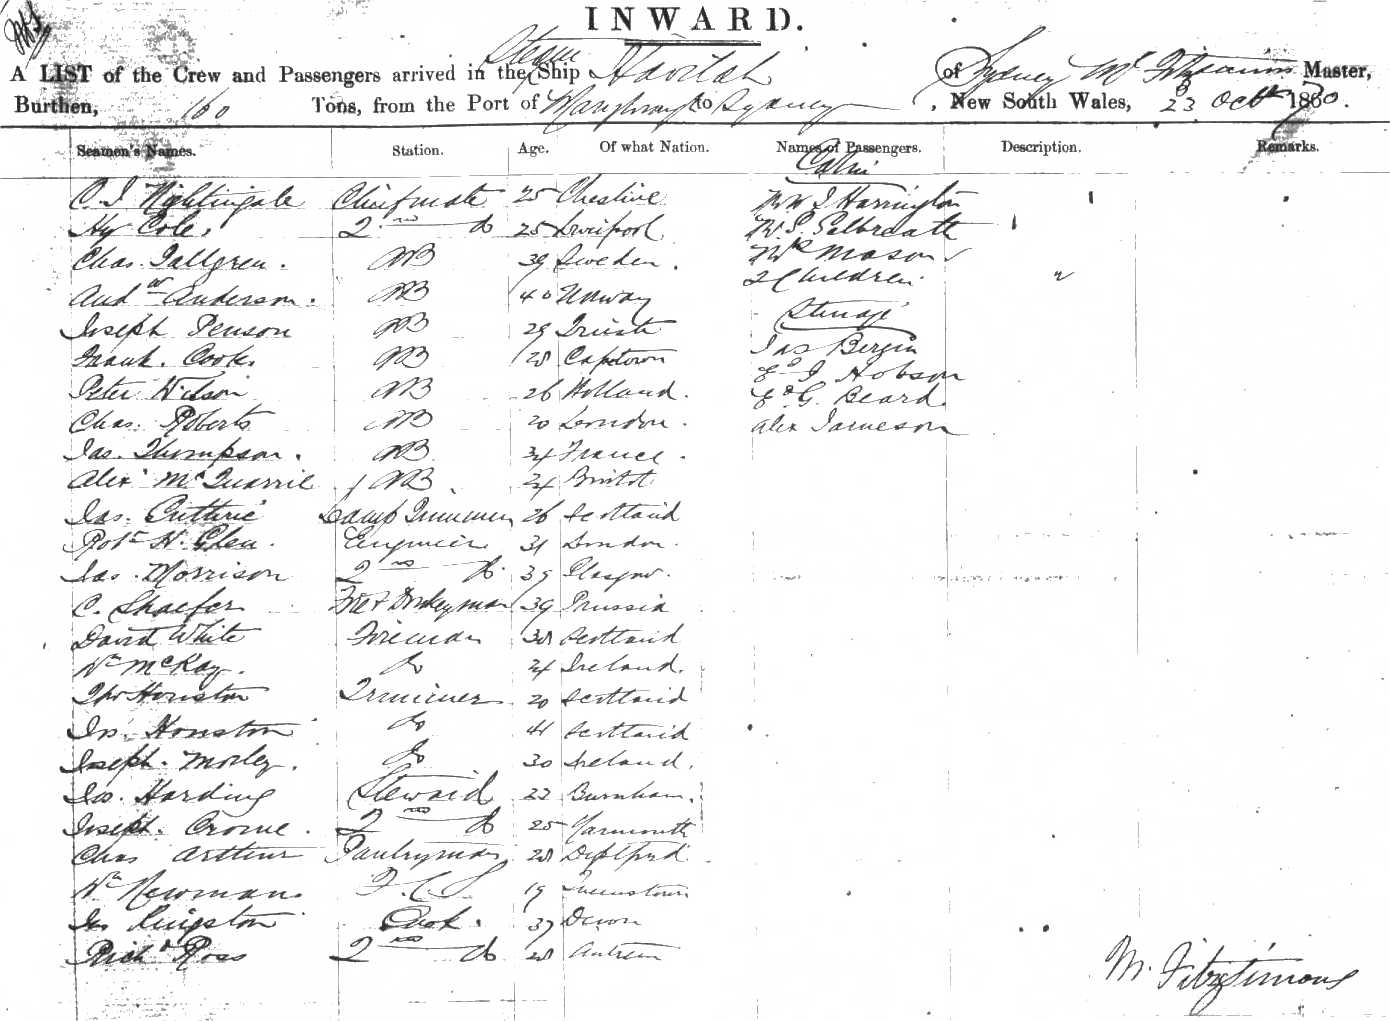 INWARD.
A LIST of the Crew and Passengers arrived in the Steam Ship Havilah of Sydney M. Fitzsimons Master,
Burthen, 160 Tons, from the Port of Maryboro to Sydney, New South Wales, 23 Octr 1870.
Seamen's Names. Station. Age. Of what Nation. Names of Passengers. Description. Remarks.
Cabin
C. J Nightingale Chiefmate 25 Cheshire Mr W J Harrington
Hy Cole. 2nd do 25 Liverpool Mr S. Galbraath
Chas. Tallgren. AB 39 Sweden. Mrs Mason
Andw Anderson. AB 40 Norway 2 Children "
Joseph Penson AB 29 Trieste Steerage
Frank. Cook. AB 28 Capetown Jas Bergin
Peter Wilson AB 26 Holland. Ed J Hobson
Chas. Roberts AB 20 London. Ed G. Beard.
Jas. Thompson. AB 34 France. Alex Jameson
Alexr McQuarrie AB 24 Bristol
Jas. Guthrie Lamp Trimmer 26 Scotland
Robt H. Glen. Engineer 31 London.
Jas. Morrison 2nd do 39 Glasgow.
C. Shaefer Fire & Donkeyman 39 Prussia
David White Fireman 38 Scotland
Wm McKay. do 24 Ireland.
Thos Houston Trimmer 20 Scotland
Jno Houston do 41 Scotland
Joseph. Morley. do 30 Ireland.
Jas. Harding Steward 22 Burnham.
Joseph. Crowe. 2nd do 25 Yarmouth
Chas Arthur Pantryman 28 Deptford
Wm Newman. F. C. S 19 Queenstown
Jas Kingston Cook. 37 Devon
Richd Ross 2nd do 28 Antrim
M. Fitzsimons